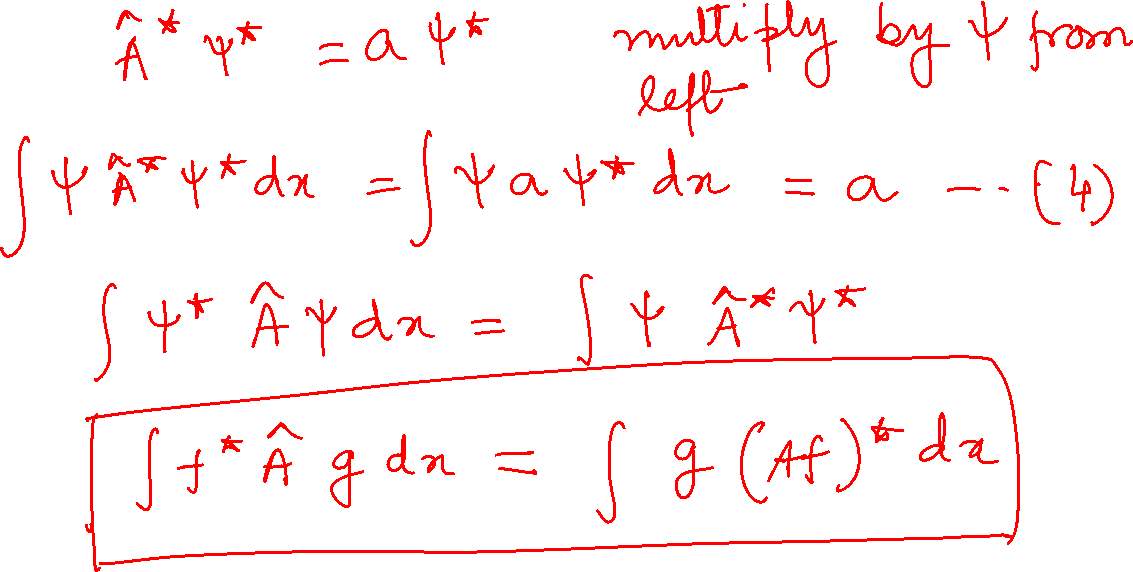 Â* ψ* = a ψ* multiply by ψ from
left
∫ ψ Â* ψ* dx = ∫ ψ a ψ* dx = a --- (4)
∫ ψ* Â ψ dx = ∫ ψ Â* ψ*
∫ f* Â g dx = ∫ g (Af)* dx